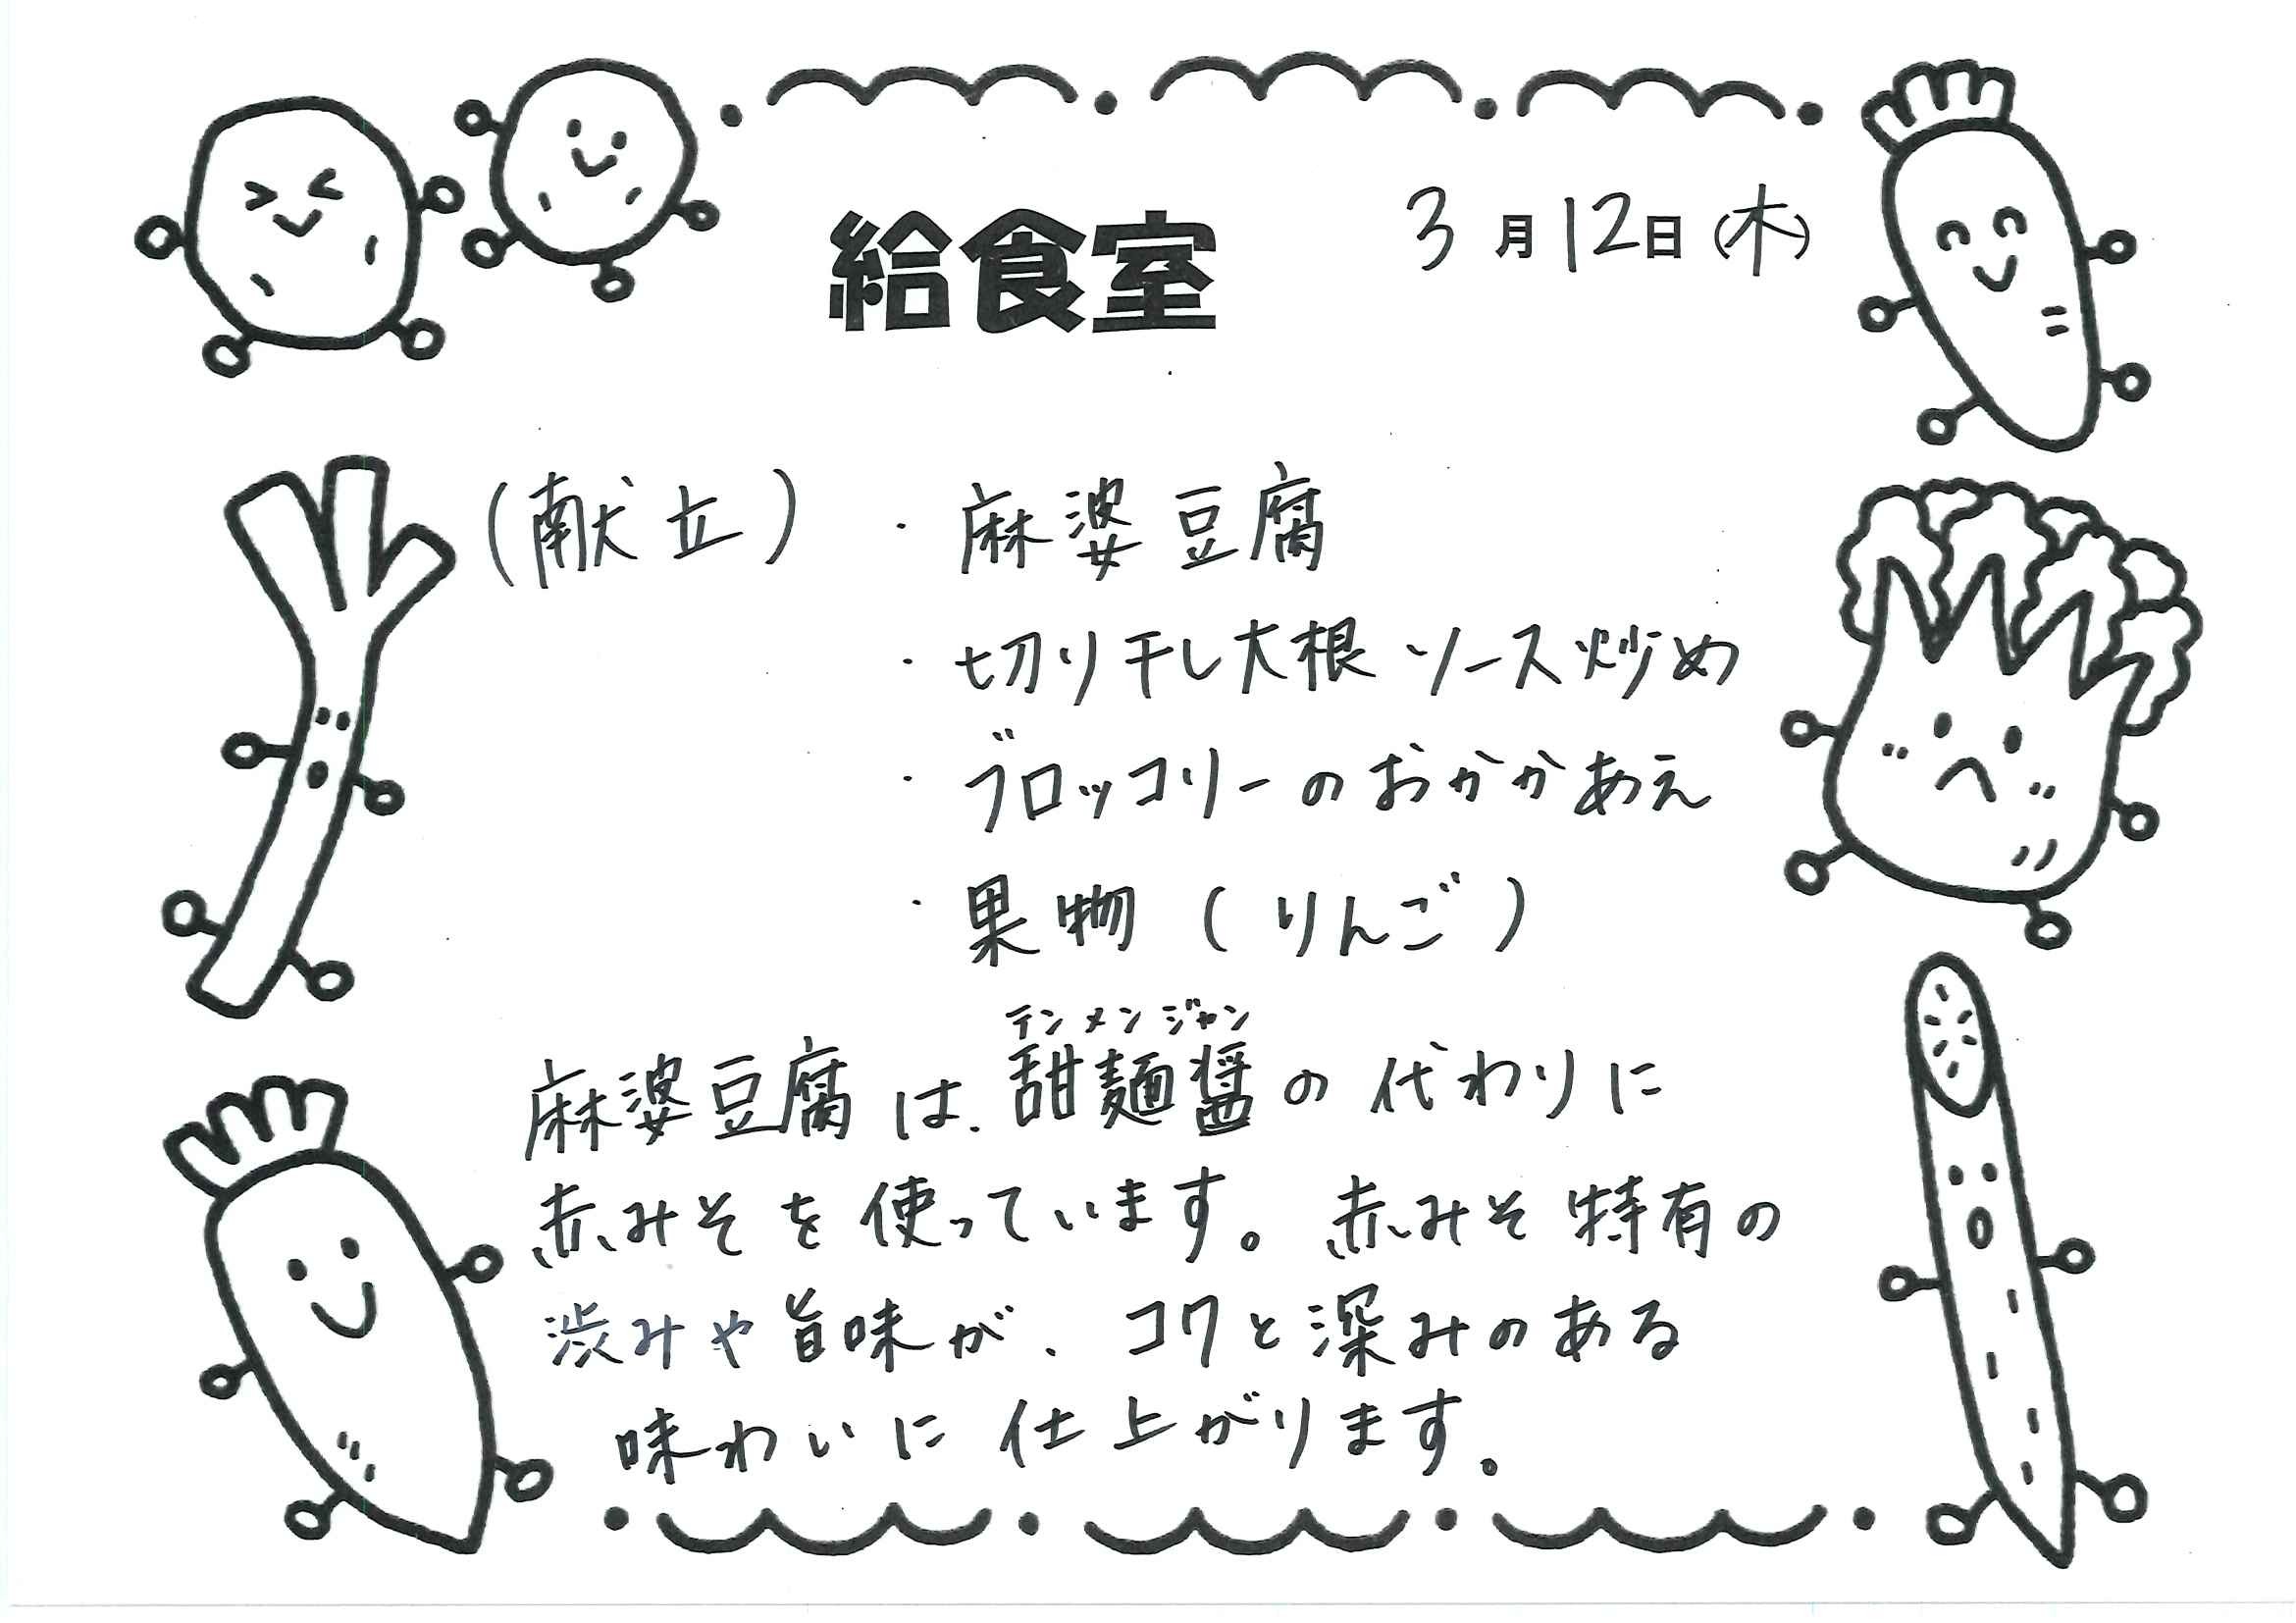 給食室
3月12日(木)
(献立)・麻婆豆腐
・切り干し大根ソース炒め
・ブロッコリーのおかかあえ
・果物(りんご)
テンメンジャン
麻婆豆腐は、甜麺醤の代わりに
赤みそを使っています。赤みそ特有の
渋みや旨味が、コクと深みのある
味わいに仕上がります。